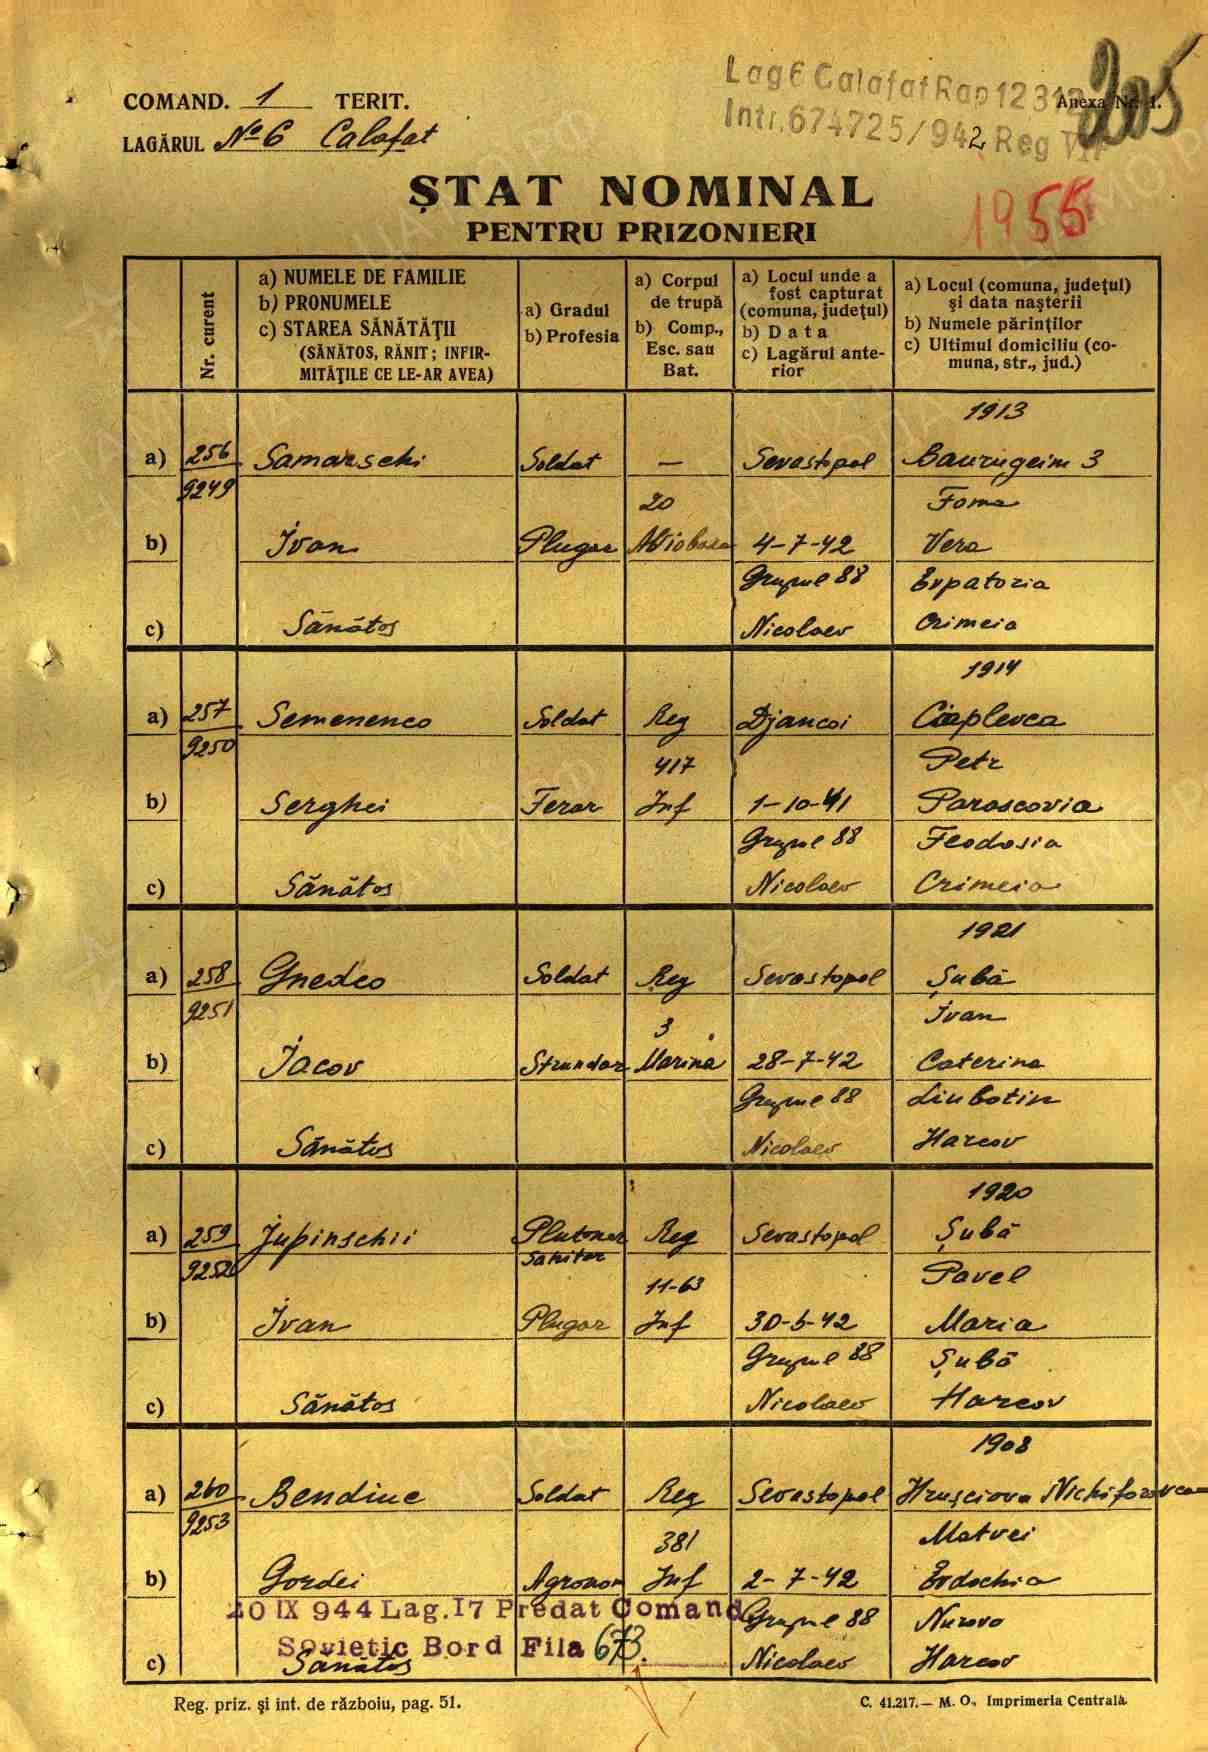 Lag 6 Calafat Rap 12312
Anexa Nr. 1.
205
Intr. 674725/942 Reg VII
COMAND. 1 TERIT.
LAGĂRUL No 6 Calafat
ŞTAT NOMINAL
PENTRU PRIZONIERI
1955
Nr. curent
a) NUMELE DE FAMILIE
b) PRONUMELE
c) STAREA SĂNĂTĂŢII
(SĂNĂTOS, RĂNIT; INFIR-
MITĂŢILE CE LE-AR AVEA)
a) Gradul
b) Profesia
a) Corpul
de trupă
b) Comp.,
Esc. sau
Bat.
a) Locul unde a
fost capturat
(comuna, judeţul)
b) Data
c) Lagărul ante-
rior
a) Locul (comuna, judeţul)
şi data naşterii
b) Numele părinţilor
c) Ultimul domiciliu (co-
muna, str., jud.)
1913
a) 256 Samarschi Soldat — Sevastopol Baurugeim 3
9249 20 Foma
b) Ivan Plugar 4-7-42 Vera
Grupul 88 Evpatoria
c) Sănătos Nicolaev Crimeia
1914
a) 257 Semenenco Soldat Reg Djancoi Ciaplevca
9250 417 Petr
b) Serghei Ferar Inf 1-10-41 Parascovia
Grupul 88 Feodosia
c) Sănătos Nicolaev Crimeia
1921
a) 258 Gnedco Soldat Reg Sevastopol Şubă
9251 3 Ivan
b) Iacov Strundar Marina 28-7-42 Caterina
Grupul 88 Liubotin
c) Sănătos Nicolaev Harcov
1920
a) 259 Jupinschii Plutoner Reg Sevastopol Şubă
Sanitar
9252 11-63 Pavel
b) Ivan Plugar Inf 30-6-42 Maria
Grupul 88 Şubă
c) Sănătos Nicolaev Harcov
1908
a) 260 Bendiuc Soldat Reg Sevastopol Hruşciova Nichiforovca
9253 381 Matvei
b) Gordei Agronom Inf 2-7-42 Evdochia
20 IX 944 Lag. 17 Predat Comand
Grupul 88 Nurovo
Sovietic Bord Fila 673.
c) Sănătos Nicolaev Harcov
Reg. priz. şi int. de războiu, pag. 51.
C. 41.217.— M. O., Imprimeria Centrală